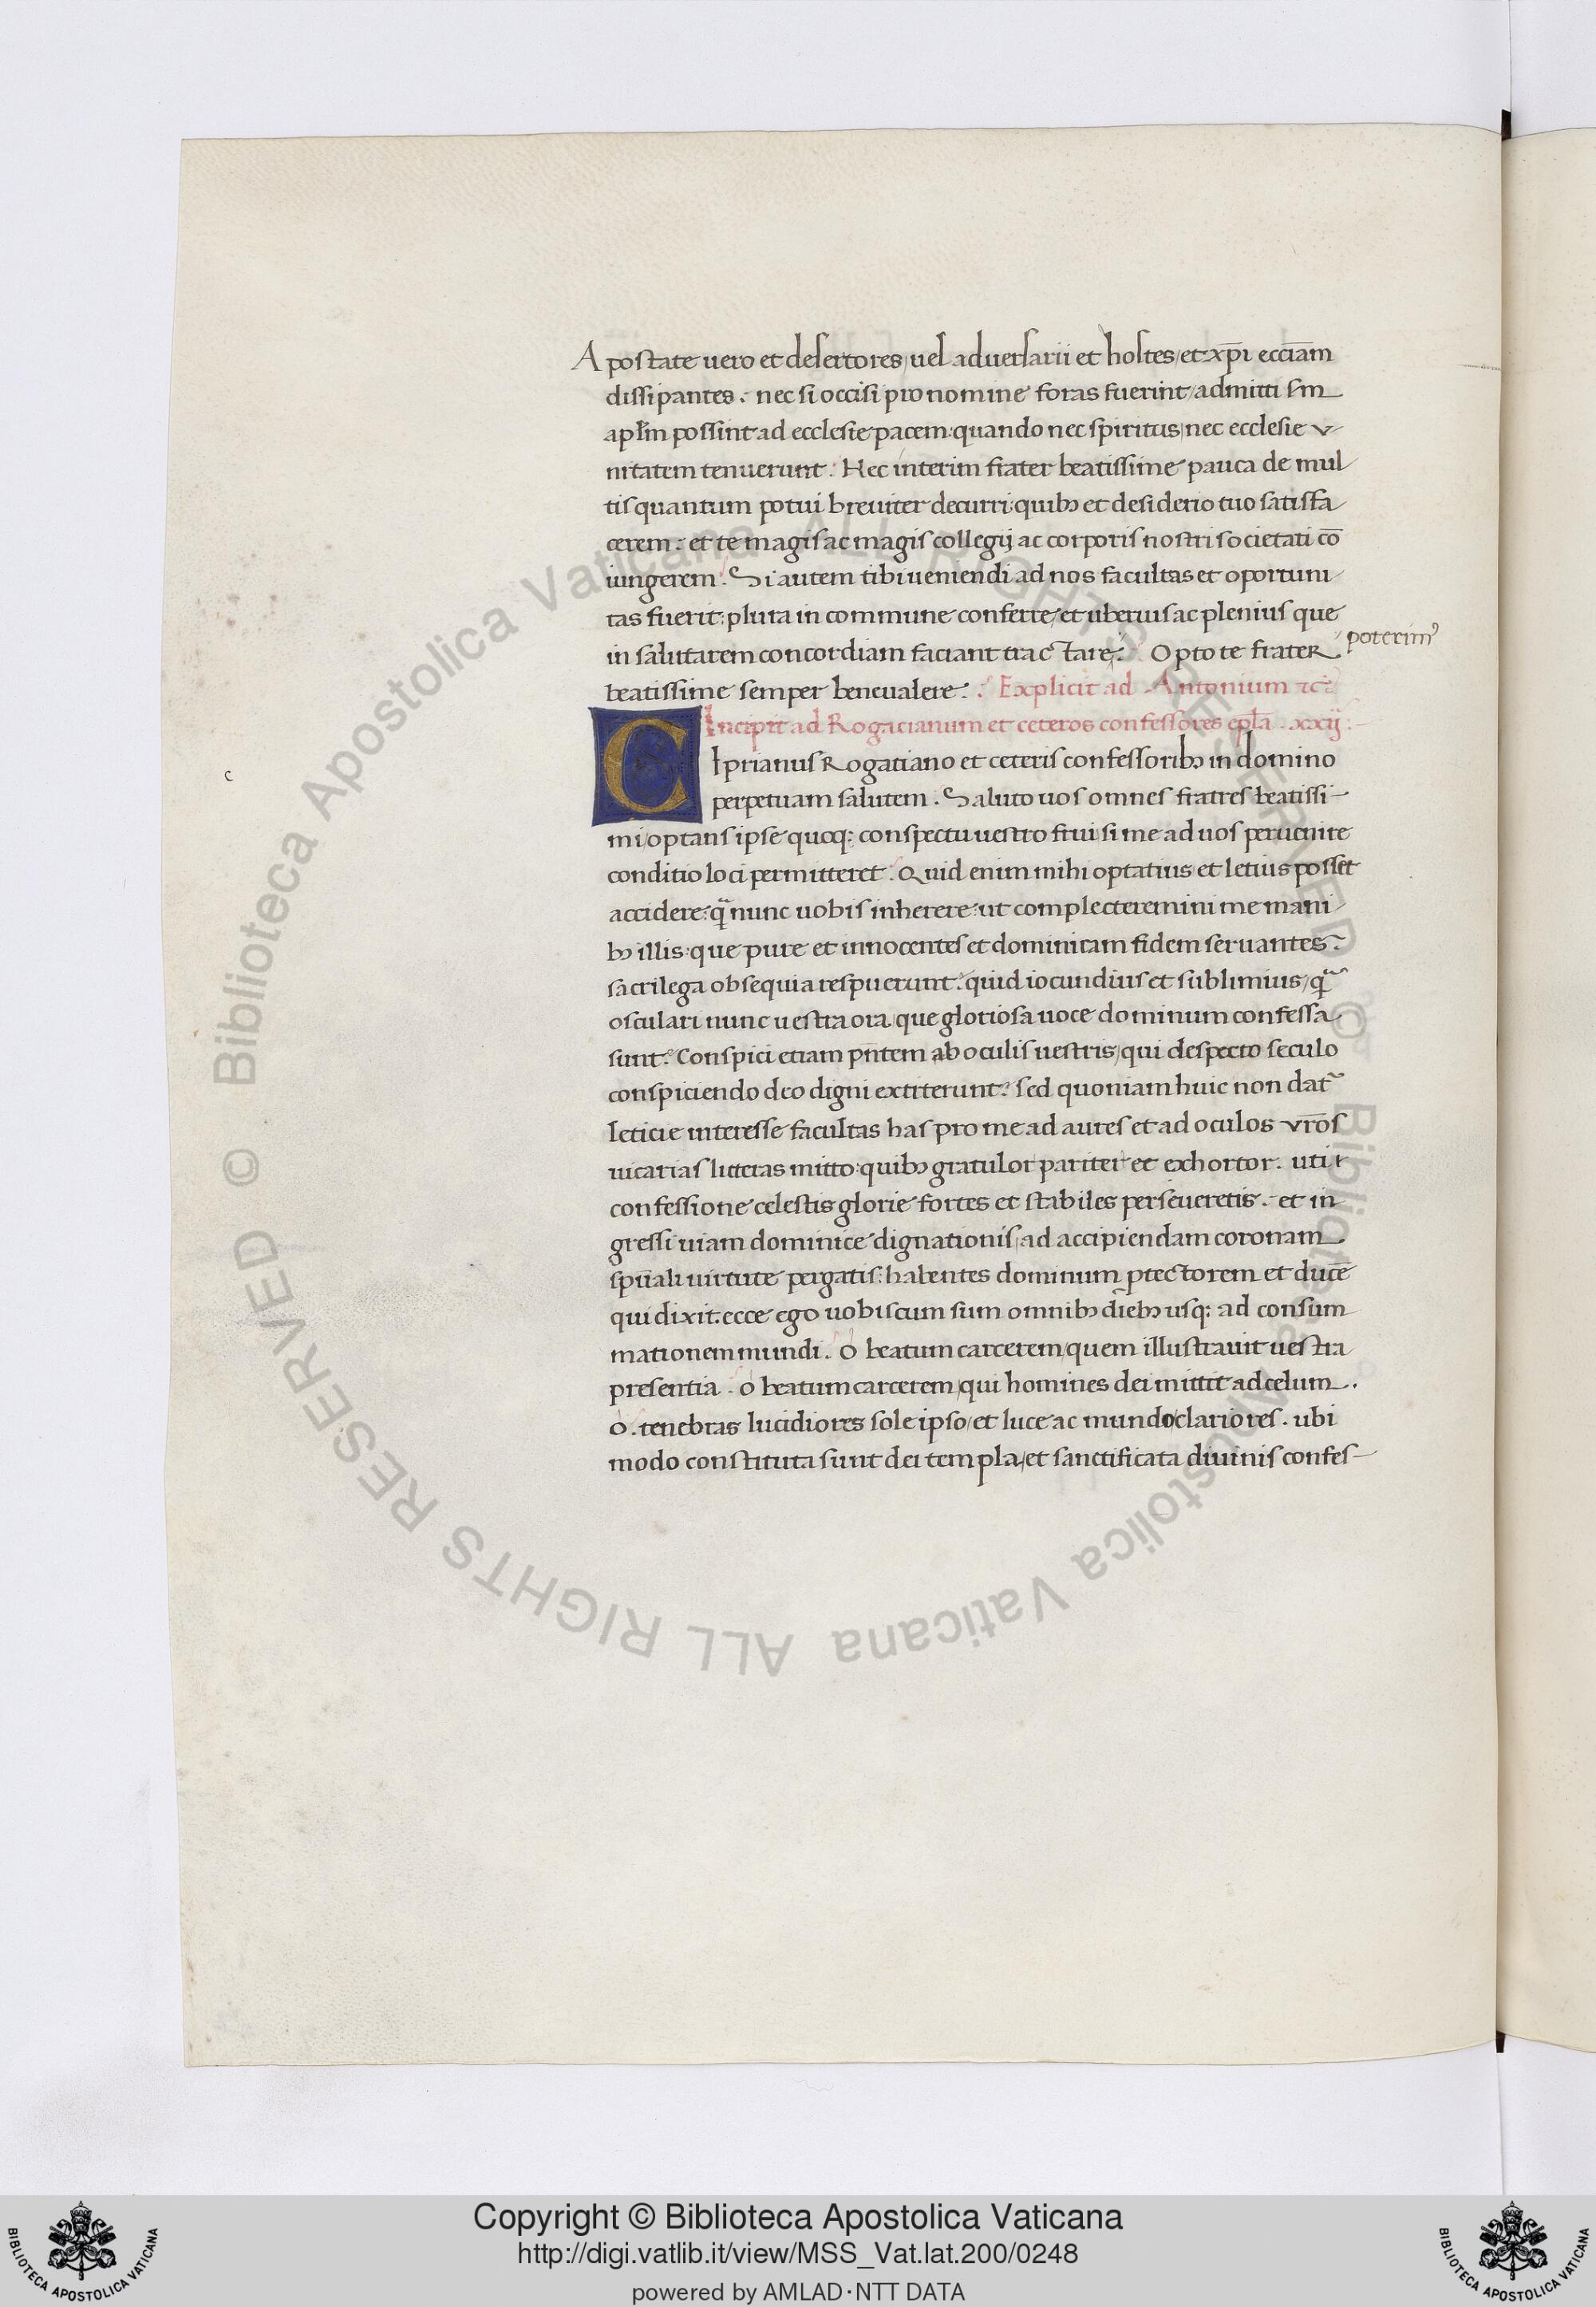 Apostate vero et desertores, vel adversarii et hostes, et xp̄i eccl̄iam
dissipantes. nec si occisi pro nomine foras fuerint, admitti scd̄m
apl̄m possint ad ecclesie pacem: quando nec spiritus, nec ecclesie v-
nitatem tenuerunt. Hec interim frater beatissime pauca de mul-
tis quantum potui breviter decurri: quibꝫ et desiderio tuo satisfa-
cerem: et te magis ac magis collegij ac corporis nostri societati cō
iungerem. Si autem tibi veniendi ad nos facultas et oportuni-
tas fuerit: plura in commune conferre, et uberius ac plenius que
in salutarem concordiam faciant tractare. Opto te frater
poterimꝰ
beatissime semper bene valere. Explicit ad Antonium ⁊cͣ
Incipit ad Rogacianum et ceteros confessores epl̄a .xxij.
CIprianus Rogatiano et ceteris confessoribꝫ in domino
perpetuam salutem. Saluto vos omnes fratres beatissi-
mi, optans ipse quoqꝫ conspectu vestro frui si me ad vos pervenire
conditio loci permitteret. Quid enim mihi optatius et letius posset
accidere: qͣ̄ nunc vobis inherere: ut complecteremini me mani-
bꝫ illis: que pure et innocentes et dominicam fidem servantes
sacrilega obsequia respuerunt? quid iocundius et sublimius, qͣ̄
osculari nunc vestra ora, que gloriosa voce dominum confessa
sunt? Conspici etiam pn̄tem ab oculis vestris, qui despecto seculo
conspiciendo deo digni extiterunt? sed quoniam huic non dat᷑
leticie interesse facultas has pro me ad aures et ad oculos vr̄os
vicarias litteras mitto: quibꝫ gratulor pariter et exhortor. uti ī
confessione celestis glorie fortes et stabiles perseveretis. et in
gressi viam dominice dignationis, ad accipiendam coronam
spūali virtute pergatis: habentes dominum ꝓtectorem et ducē
qui dixit. ecce ego vobiscum sum omnibꝫ diebꝫ usqꝫ ad consum
mationem mundi. o beatum carcerem, quem illustravit vestra
presentia. o beatum carcerem, qui homines dei mittit ad celum.
o. tenebras lucidiores sole ipso, et luce ac mundo, clariores. ubi
modo constituta sunt dei templa, et sanctificata divinis confes-
c
Copyright © Biblioteca Apostolica Vaticana
http://digi.vatlib.it/view/MSS_Vat.lat.200/0248
powered by AMLAD·NTT DATA
BIBLIOTECA APOSTOLICA VATICANA
BIBLIOTECA APOSTOLICA VATICANA
© Biblioteca Apostolica Vaticana ALL RIGHTS RESERVED © Biblioteca Apostolica Vaticana ALL RIGHTS RESERVED